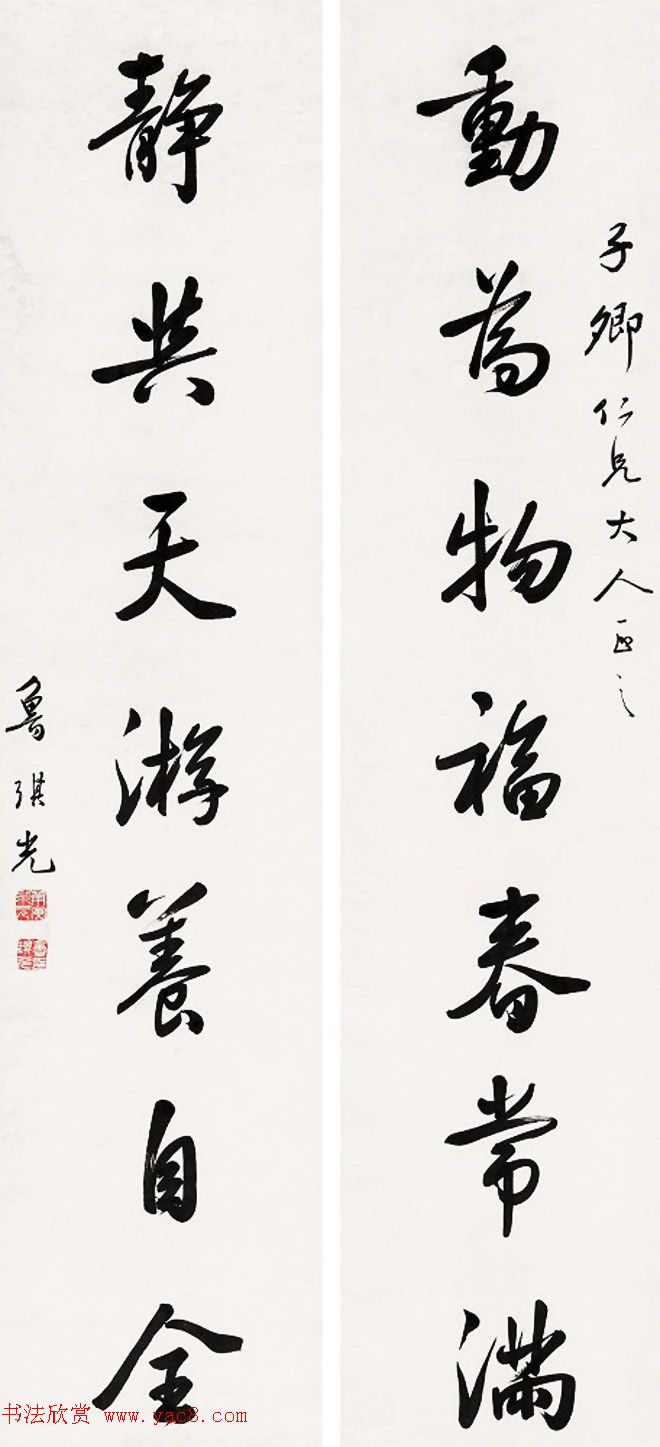 子卿仁兄大人正之
動為物福春常滿
靜共天游養自全
魯琪光
书法欣赏 www.yac8.com